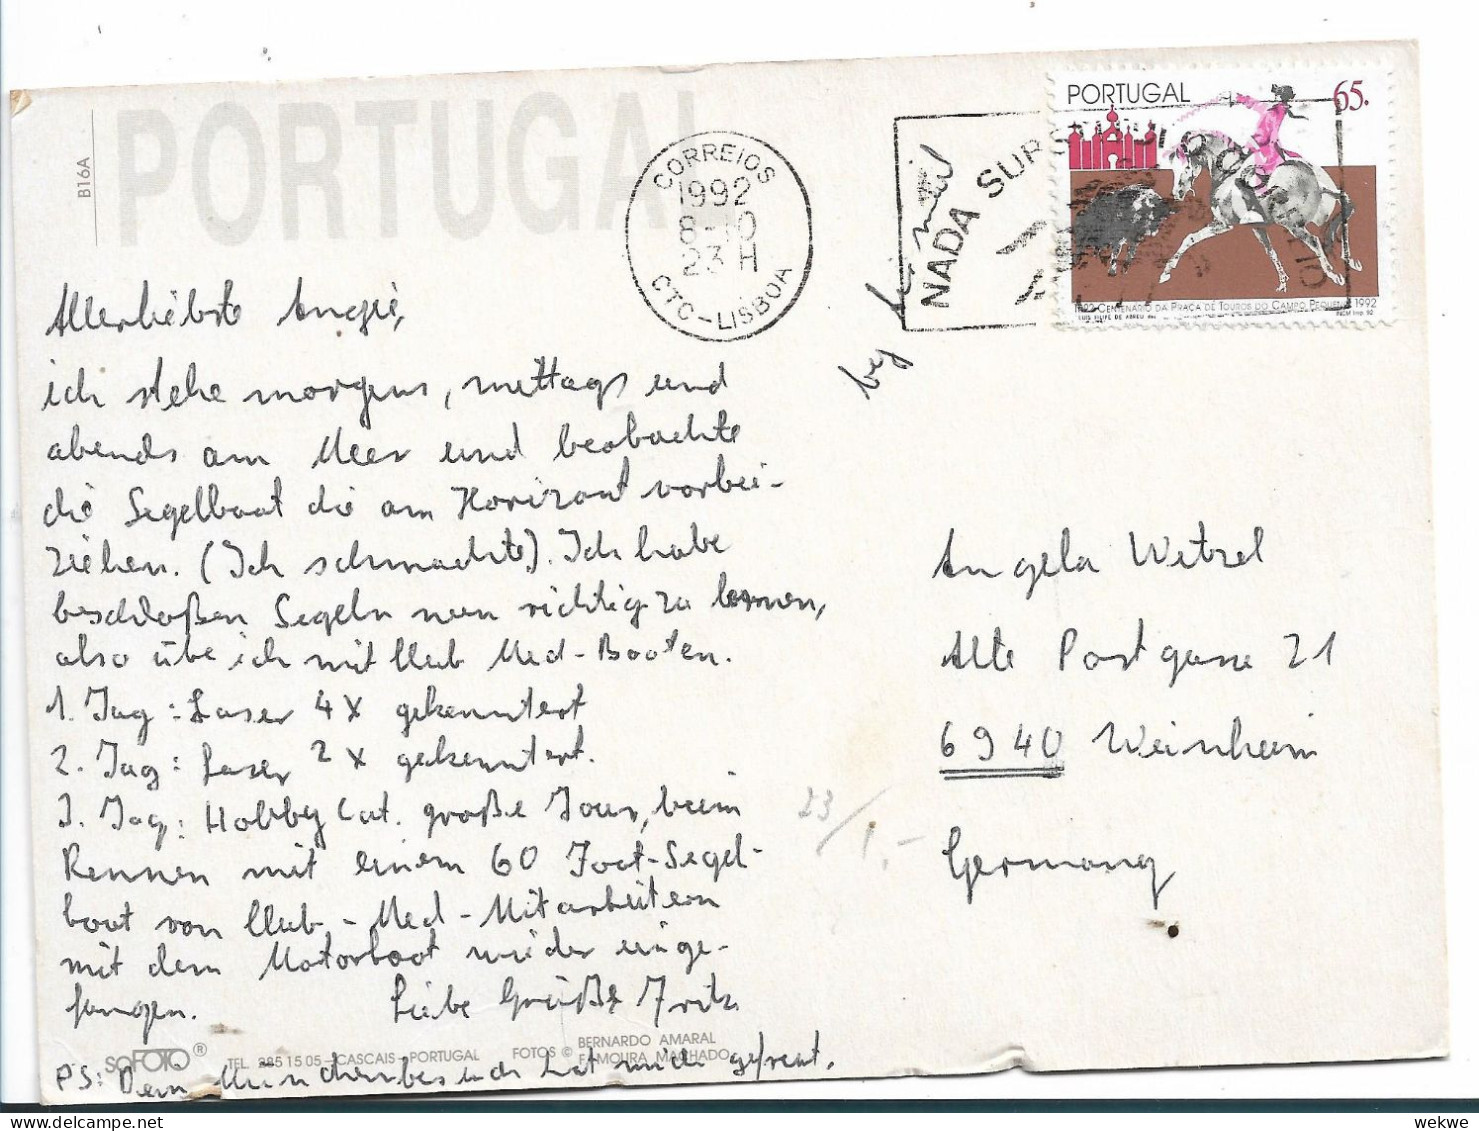 PORTUGAL
B16A
CORREIOS
1992
8-10
23 H
CTC-LISBOA
NADA SUR
CORREIO
PORTUGAL 65.
1892 CENTENÁRIO DA PRAÇA DE TOUROS DO CAMPO PEQUENO 1992
LUIS FILIPE DE ABREU
INCM Imp. 92
by
Allerliebste Angie,
ich stehe morgens, mittags und
abends am Meer und beobachte
die Segelboot die am Horizont vorbei-
ziehen. (Ich schmachte). Ich habe
beschloßen Segeln nun richtig zu lernen,
also übe ich mit Club Med-Booten.
1. Tag: Laser 4 x gekenntert
2. Tag: Laser 2 x gekenntert.
3. Tag: Hobby Cat. große Tour, beim
Rennen mit einem 60 Foot-Segel-
boot von Club-Med-Mitarbeitern
mit dem Motorboot wieder einge-
fangen. Liebe Grüße Fritz
PS: Dein Münchenbesuch hat mich gefreut.
Angela Wetzel
Alte Postgasse 21
6940 Weinheim
Germany
23/1,-
SOFOTO ® TEL. 285 15 05 - CASCAIS - PORTUGAL FOTOS © BERNARDO AMARAL
F. MOURA MACHADO
wekwe